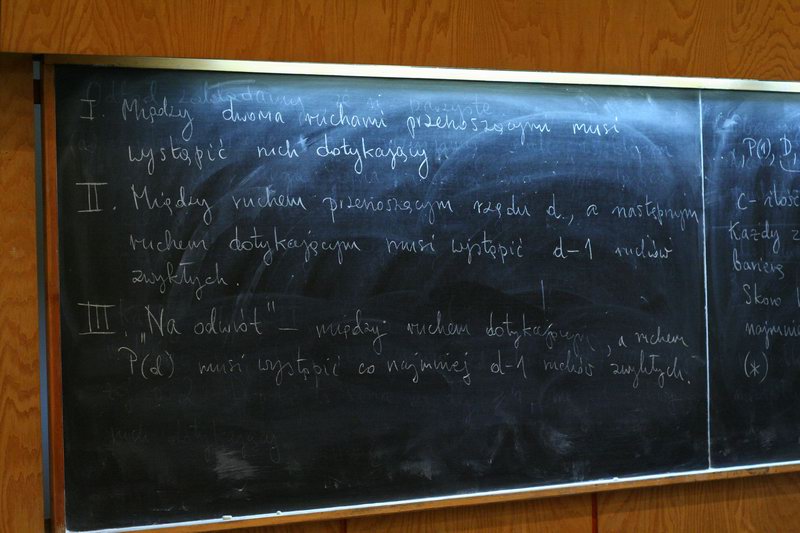 I. Między dwoma ruchami przenoszącymi musi
wystąpić ruch dotykający
II. Między ruchem przenoszącym rzędu d, a następnym
ruchem dotykającym musi wystąpić d-1 ruchów
zwykłych.
III. „Na odwrót" – między ruchem dotykającym, a ruchem
P(d) musi wystąpić co najmniej d-1 ruchów zwykłych.
P(1), D,
C - ilość
Każdy z
barierę
Skoro
(*)